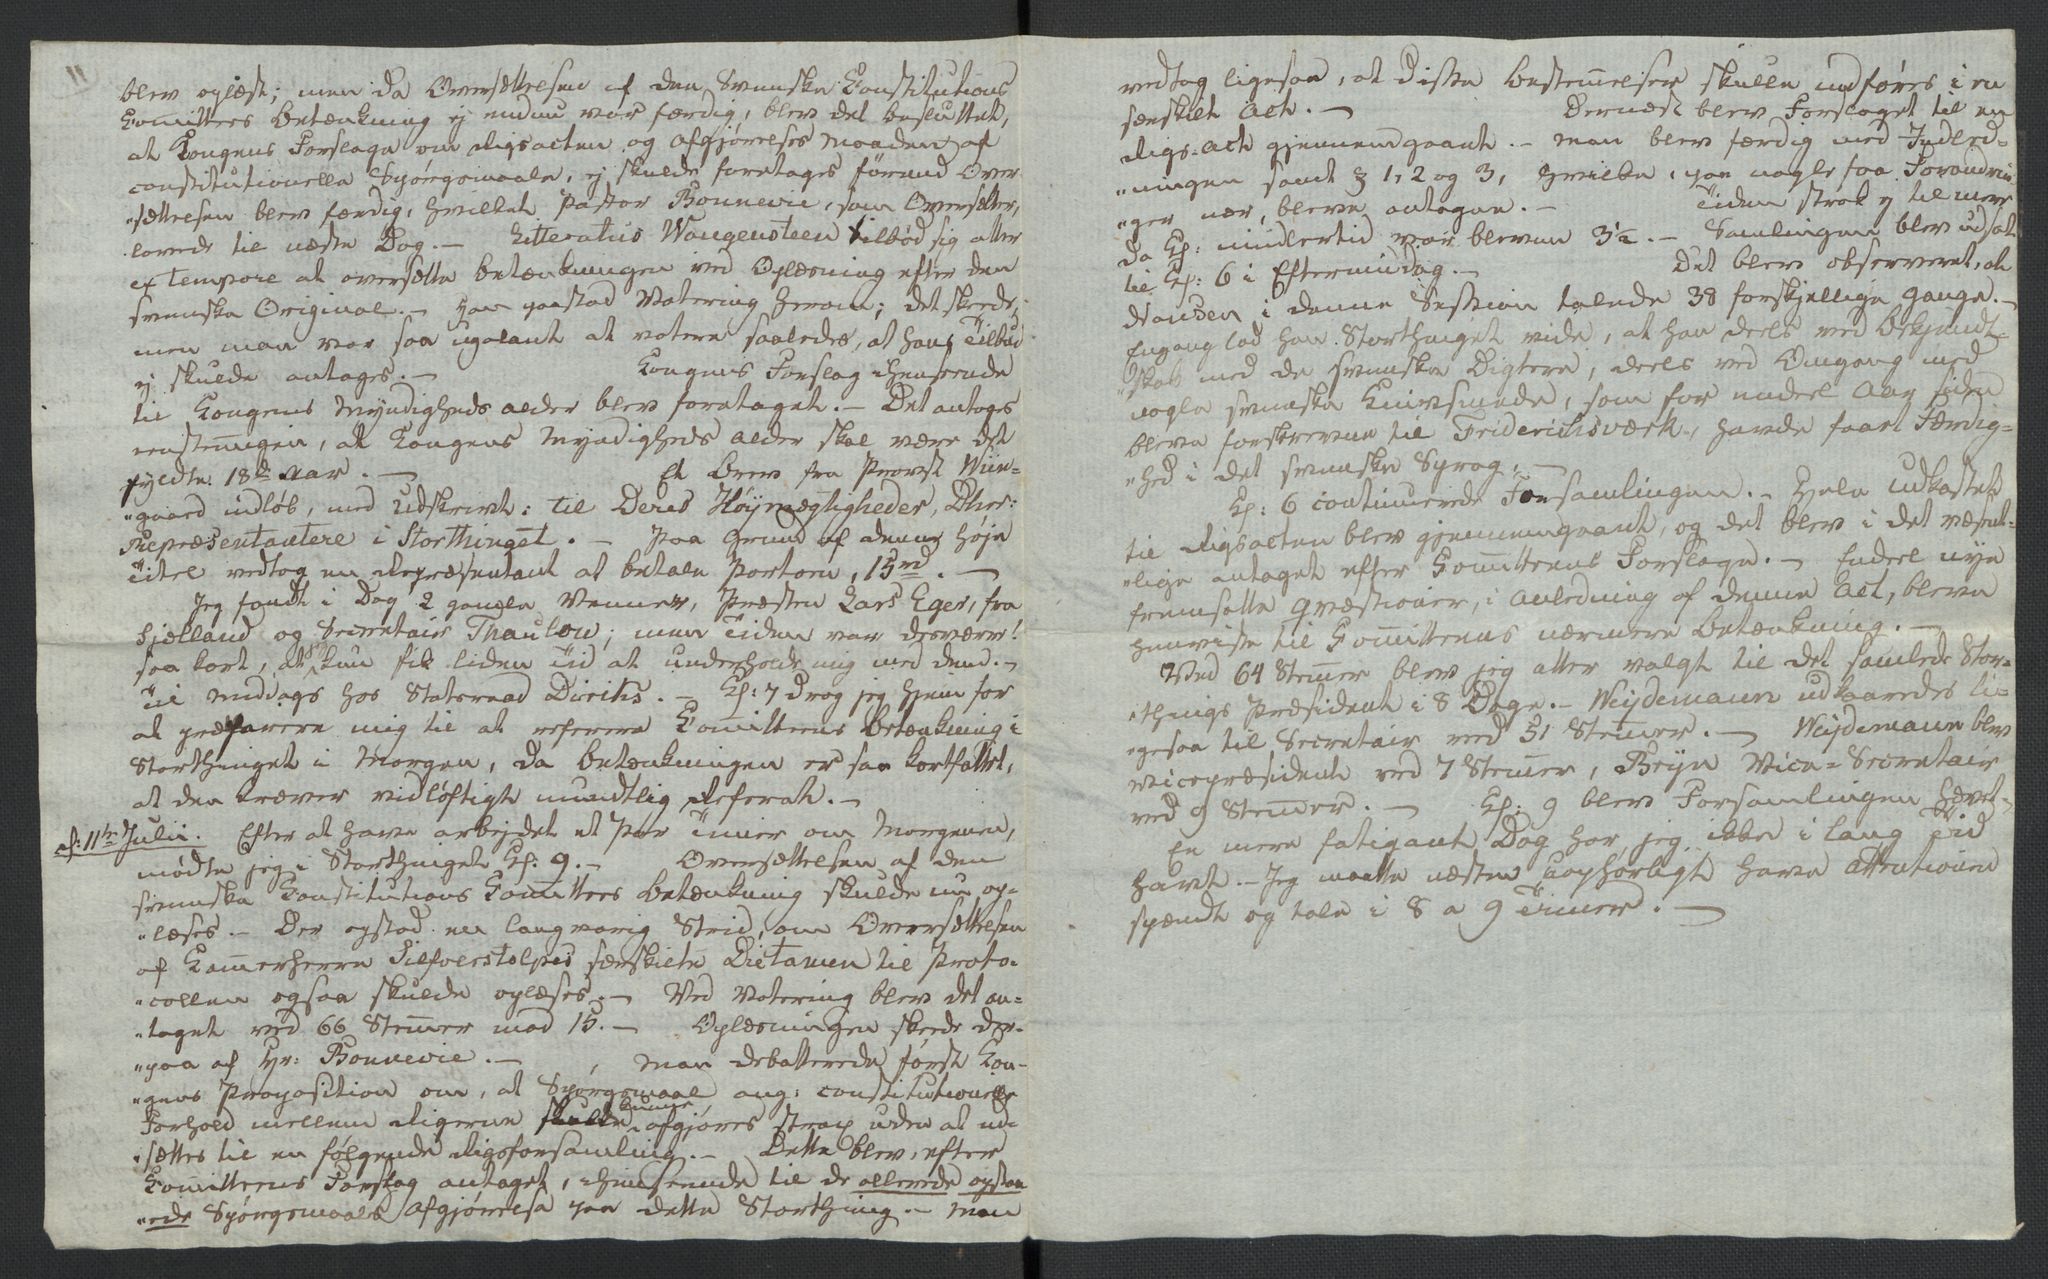 blev oplæst; men da Oversættelsen af den Svenske Constitutions
Comittees Betænkning ej endnu var færdig, blev det besluttet,
at Kongens Forslage om Rigsacten og Afgjørelses Maaden af
constitutionelle Spörgsmaale, ej skulde foretages førend Over-
"sættelsen blev færdig, hvilket Pastor Bonnevie, som Oversætter,
lovede til næste Dag. — Litteratus Wangensteen tilbød sig atter
ex tempore at oversætte Betænkningen ved Oplæsning efter den
svenske Original. — Han paastod Votering herom; det skeede,
men man var saa ugalant at votere saaledes, at hans Tilbud
ej skulde antages. — Kongens Forslag henseende
til Kongens Myndigheds alder blev foretaget. — Det antoges
eenstemigen, at Kongens Myndigheds Alder skal være det
fyldte 18de Aar. — Et Brev fra Provst Wiin-
"gaard indløb, med Udskrivt: til Deres Höÿmægtigheder, Dhrr:
Repræsentantere i Storthinget. — Paa Grund af denne høje
Titel vedtog en Repræsentant at betale Portoen, 15 rd. —
Jeg fandt i Dag 2 gamle Venner, Præsten Lars Eger, fra
Sjælland og Secretair Thaulow; men Tiden var desværre!
saa kort, at kun fik liden Tid at underholde mig med dem. —
Til Middags hos Statsraad Diriks. — Kl: 7 drog jeg hjem for
at præparere mig til at referere Comitteens Betænkning i
Storthinget i Morgen, da Betænkningen er saa kortfattet,
at den kræver vidløftigt mundtlig Referat. —
d: 11te Julii. Efter at have arbejdet et Par Timer om Morgenen,
mødte jeg i Storthinget Kl: 9. — Oversættelsen af den
svenske Constitutions Comittees Betænkning skulde nu op-
"læses. — Der opstod en langvarig Strid, om Oversættelsen
af Kamerherre Silfverstolpes særskilte Dictamen til Proto-
"collen ogsaa skulde oplæses. — Ved Votering blev det an-
"taget ved 66 Stemer mod 15. — Oplæsningen skeede der-
"paa af Hr: Bonnevie. — Man debatterede først Kon-
"gens Proposition om, at Spørgsmaal ang: constitutionelle
Forhold mellem Rigerne kunne afgjøres strax uden at ud-
"sættes til en følgende Rigsforsamling. — Dette blev, efter
Comitteens Forslag antaget, i Henseende til de allerede opstaa-
"ede Spørgsmaals Afgjørelse paa dette Storthing. — Man
vedtog ligesaa, at disse Bestemelser skulle udføres i en
særskilt Act. — Dernæst blev Forslaget til en
Rigs-Act gjennemgaaet. — Man blev færdig med Indled-
"ningen samt § 1, 2 og 3, hvilke, paa nogle faa Forandrin-
"ger nær, bleve antagne. — Tiden strak ej til meer
da Kl: imidlertid var bleven 3½. — Samlingen blev udsat
til Kl: 6 i Eftermiddag. — Det blev observeret, at
Hansen i denne Session talede 38 forskjellige Gange. —
Engang lod han Storthinget vide, at han deels ved Bekjendt-
"skab med de svenske Digtere, deels ved Omgang med
nogle svenske Knivsmede, som for endeel Aar siden
bleve forskrevne til Friderichsværk, havde faaet Færdig-
"hed i det svenske Sprog. —
Kl: 6 continuerede Forsamlingen. — Hele Udkastet
til Rigsacten blev gjennemgaaet, og det blev i det væsent-
"lige antaget efter Comitteens Forslage. — Endeel nye
fremsatte Qvæstioner, i Anledning af denne Act, bleve
henviste til Comitteens nærmere Betænkning. —
Med 64 Stemer blev jeg atter valgt til det samlede Stor-
"things Præsident i 8 Dage. — Weydemann udkaaredes li-
"gesaa til Secretair ved 51 Stemer. — Weydemann blev
Vicepræsident ved 7 Stemer, Bryn Vice-Secretair
ved 9 Stemer. — Kl: 9 blev Forsamlingen hævet. —
En mere fatigant Dag har jeg ikke i lang Tid
havt. — Jeg maatte næsten uophørligt have Attentionen
spændt og tale i 8 a 9 Timer. —